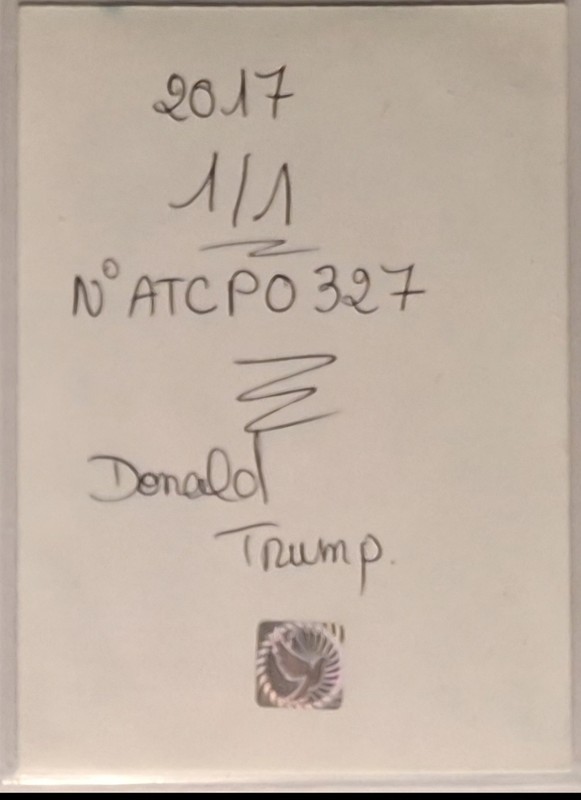 2017
1/1
N° ATCPO 327
Donald
Trump.